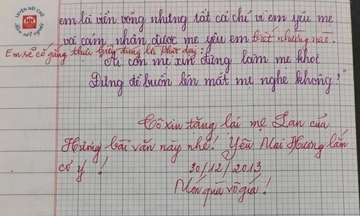 em là viển vông nhưng tất cả chỉ vì em yêu mẹ
và cảm nhận được mẹ yêu em biết nhường nào.
Em sẽ cố gắng thực hiện đúng lời Phật dạy:
"Ai còn mẹ xin đừng làm mẹ khóc
Đừng để buồn lên mắt mẹ nghe không?"
Cô xin tặng lại mẹ Lan của
Hương bài văn này nhé! Yêu Mai Hương lắm
cơ ý!
30/12/2013
Món quà vô giá!